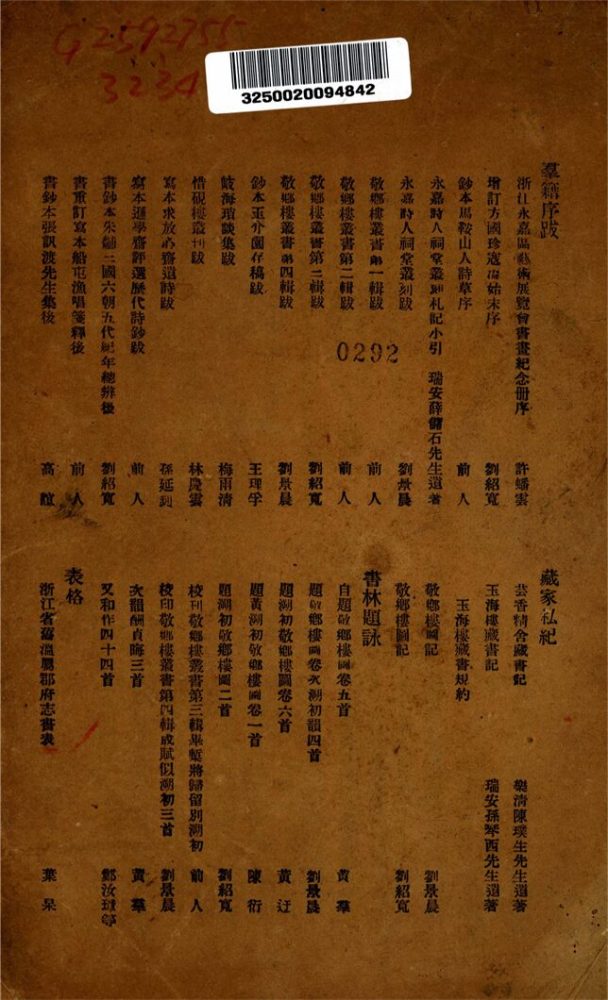 G2592755
3234
3250020094842
羣籍序跋
浙江永嘉區藝術展覽會書畫紀念册序 許蟠雲
增訂方國珍寇溫始末序 劉紹寬
鈔本馬鞍山人詩草序 前人
永嘉時人祠堂叢刻札記小引 瑞安薛儲石先生遺著
永嘉詩人祠堂叢刻跋 劉景晨
敬鄉樓叢書第一輯跋 前人
敬鄉樓叢書第二輯跋 前人
敬鄉樓叢書第三輯跋 劉紹寬
敬鄉樓叢書第四輯跋 劉景晨
鈔本玉介園存稿跋 王理孚
岐海瑣談集跋 梅雨清
惜硯樓叢刊跋 林慶雲
寫本求放心齋遺詩跋 孫延釗
寫本遜學齋評選歷代詩鈔跋 前人
書鈔本朱黼三國六朝五代紀年總辨後 劉紹寬
書重訂寫本船屯漁唱箋釋後 前人
書鈔本張訊渡先生集後 高誼
0292
藏家弘紀
芸香精舍藏書記 樂清陳璞生先生遺著
玉海樓藏書記 瑞安孫琴西先生遺著
玉海樓藏書規約
敬鄉樓圖記 劉景晨
敬鄉樓圖記 劉紹寬
書林題詠
自題敬鄉樓圖卷五首 黃羣
題敬鄉樓圖卷次溯初韻四首 劉景晨
題溯初敬鄉樓圖卷六首 黃迂
題黃溯初敬鄉樓圖卷一首 陳衍
題溯初敬鄉樓圖二首 劉紹寬
校刊敬鄉樓叢書第三輯畢蹔將歸留別溯初 前人
校印敬鄉樓叢書第四輯成賦似溯初三首 劉景晨
次韻酬貞晦三首 黃羣
又和作四十四首
表格
浙江省舊溫屬郡府志書表 葉杲